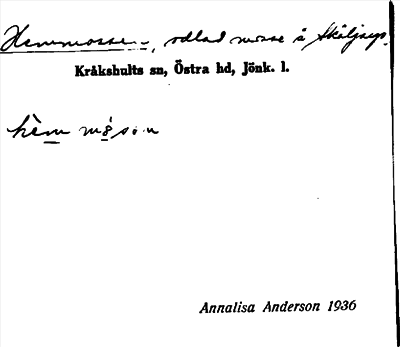 Hemmossen, odlad mosse å Skäljnys.
Kråkshults sn, Östra hd, Jönk. l.
hèm
Annalisa Anderson 1936